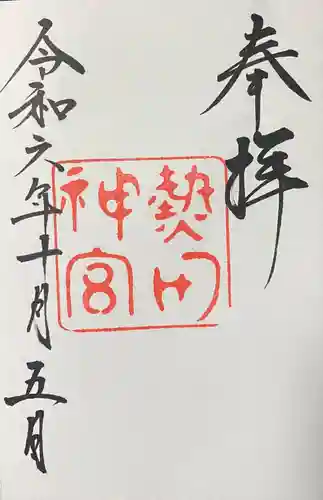 奉拝
熱田
神宮
令和六年十月五月